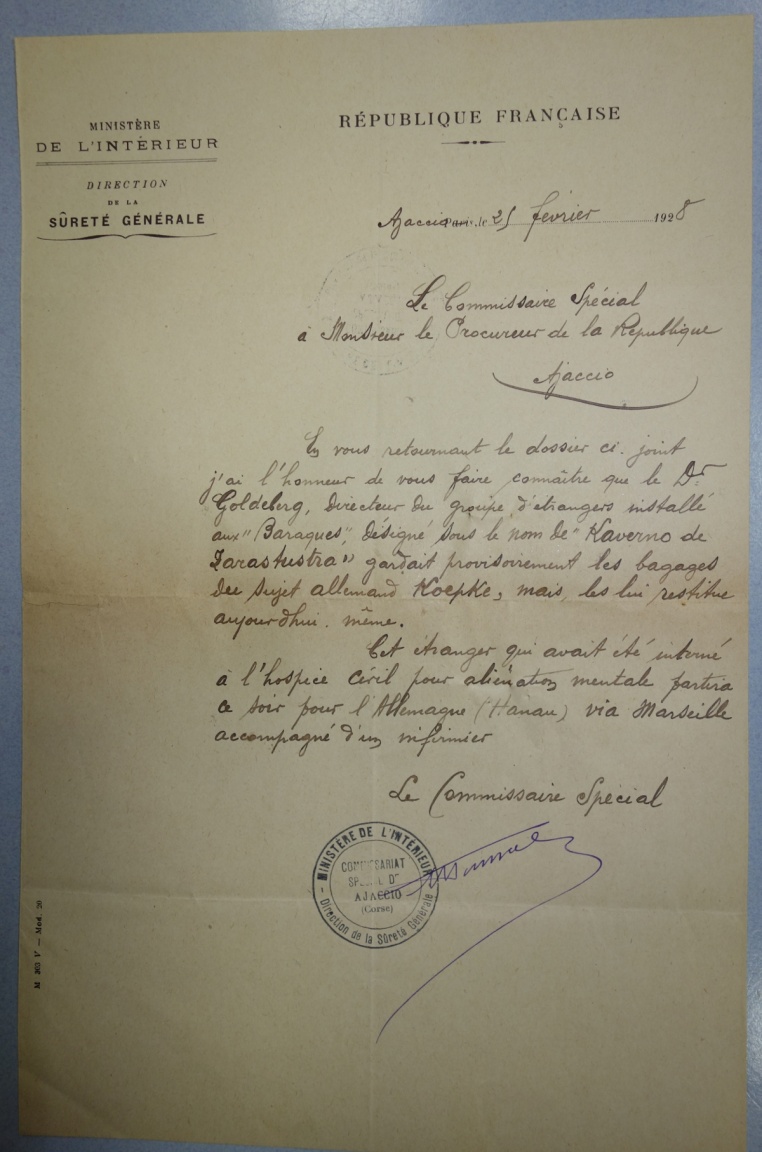 MINISTÈRE
DE L'INTÉRIEUR
DIRECTION
DE LA
SÛRETÉ GÉNÉRALE
RÉPUBLIQUE FRANÇAISE
Ajaccio Paris, le 25 février 1928
Le Commissaire Spécial
à Monsieur le Procureur de la République
Ajaccio
En vous retournant le dossier ci-joint
j'ai l'honneur de vous faire connaître que le Dr
Goldeberg, Directeur du groupe d'étrangers installé
aux "Baraques", désigné sous le nom de "Kaverno de
Zarastustra" gardait provisoirement les bagages
du sujet allemand Koepke, mais, les lui restitue
aujourd'hui même.
Cet étranger qui avait été interné
à l'hospice civil pour aliénation mentale partira
ce soir pour l'Allemagne (Hanau) via Marseille
accompagné d'un infirmier
Le Commissaire Spécial
MINISTÈRE DE L'INTÉRIEUR
COMMISSARIAT
SPÉCIAL DE
AJACCIO
(Corse)
Direction de la Sûreté Générale
M 203 V — Mod. 20